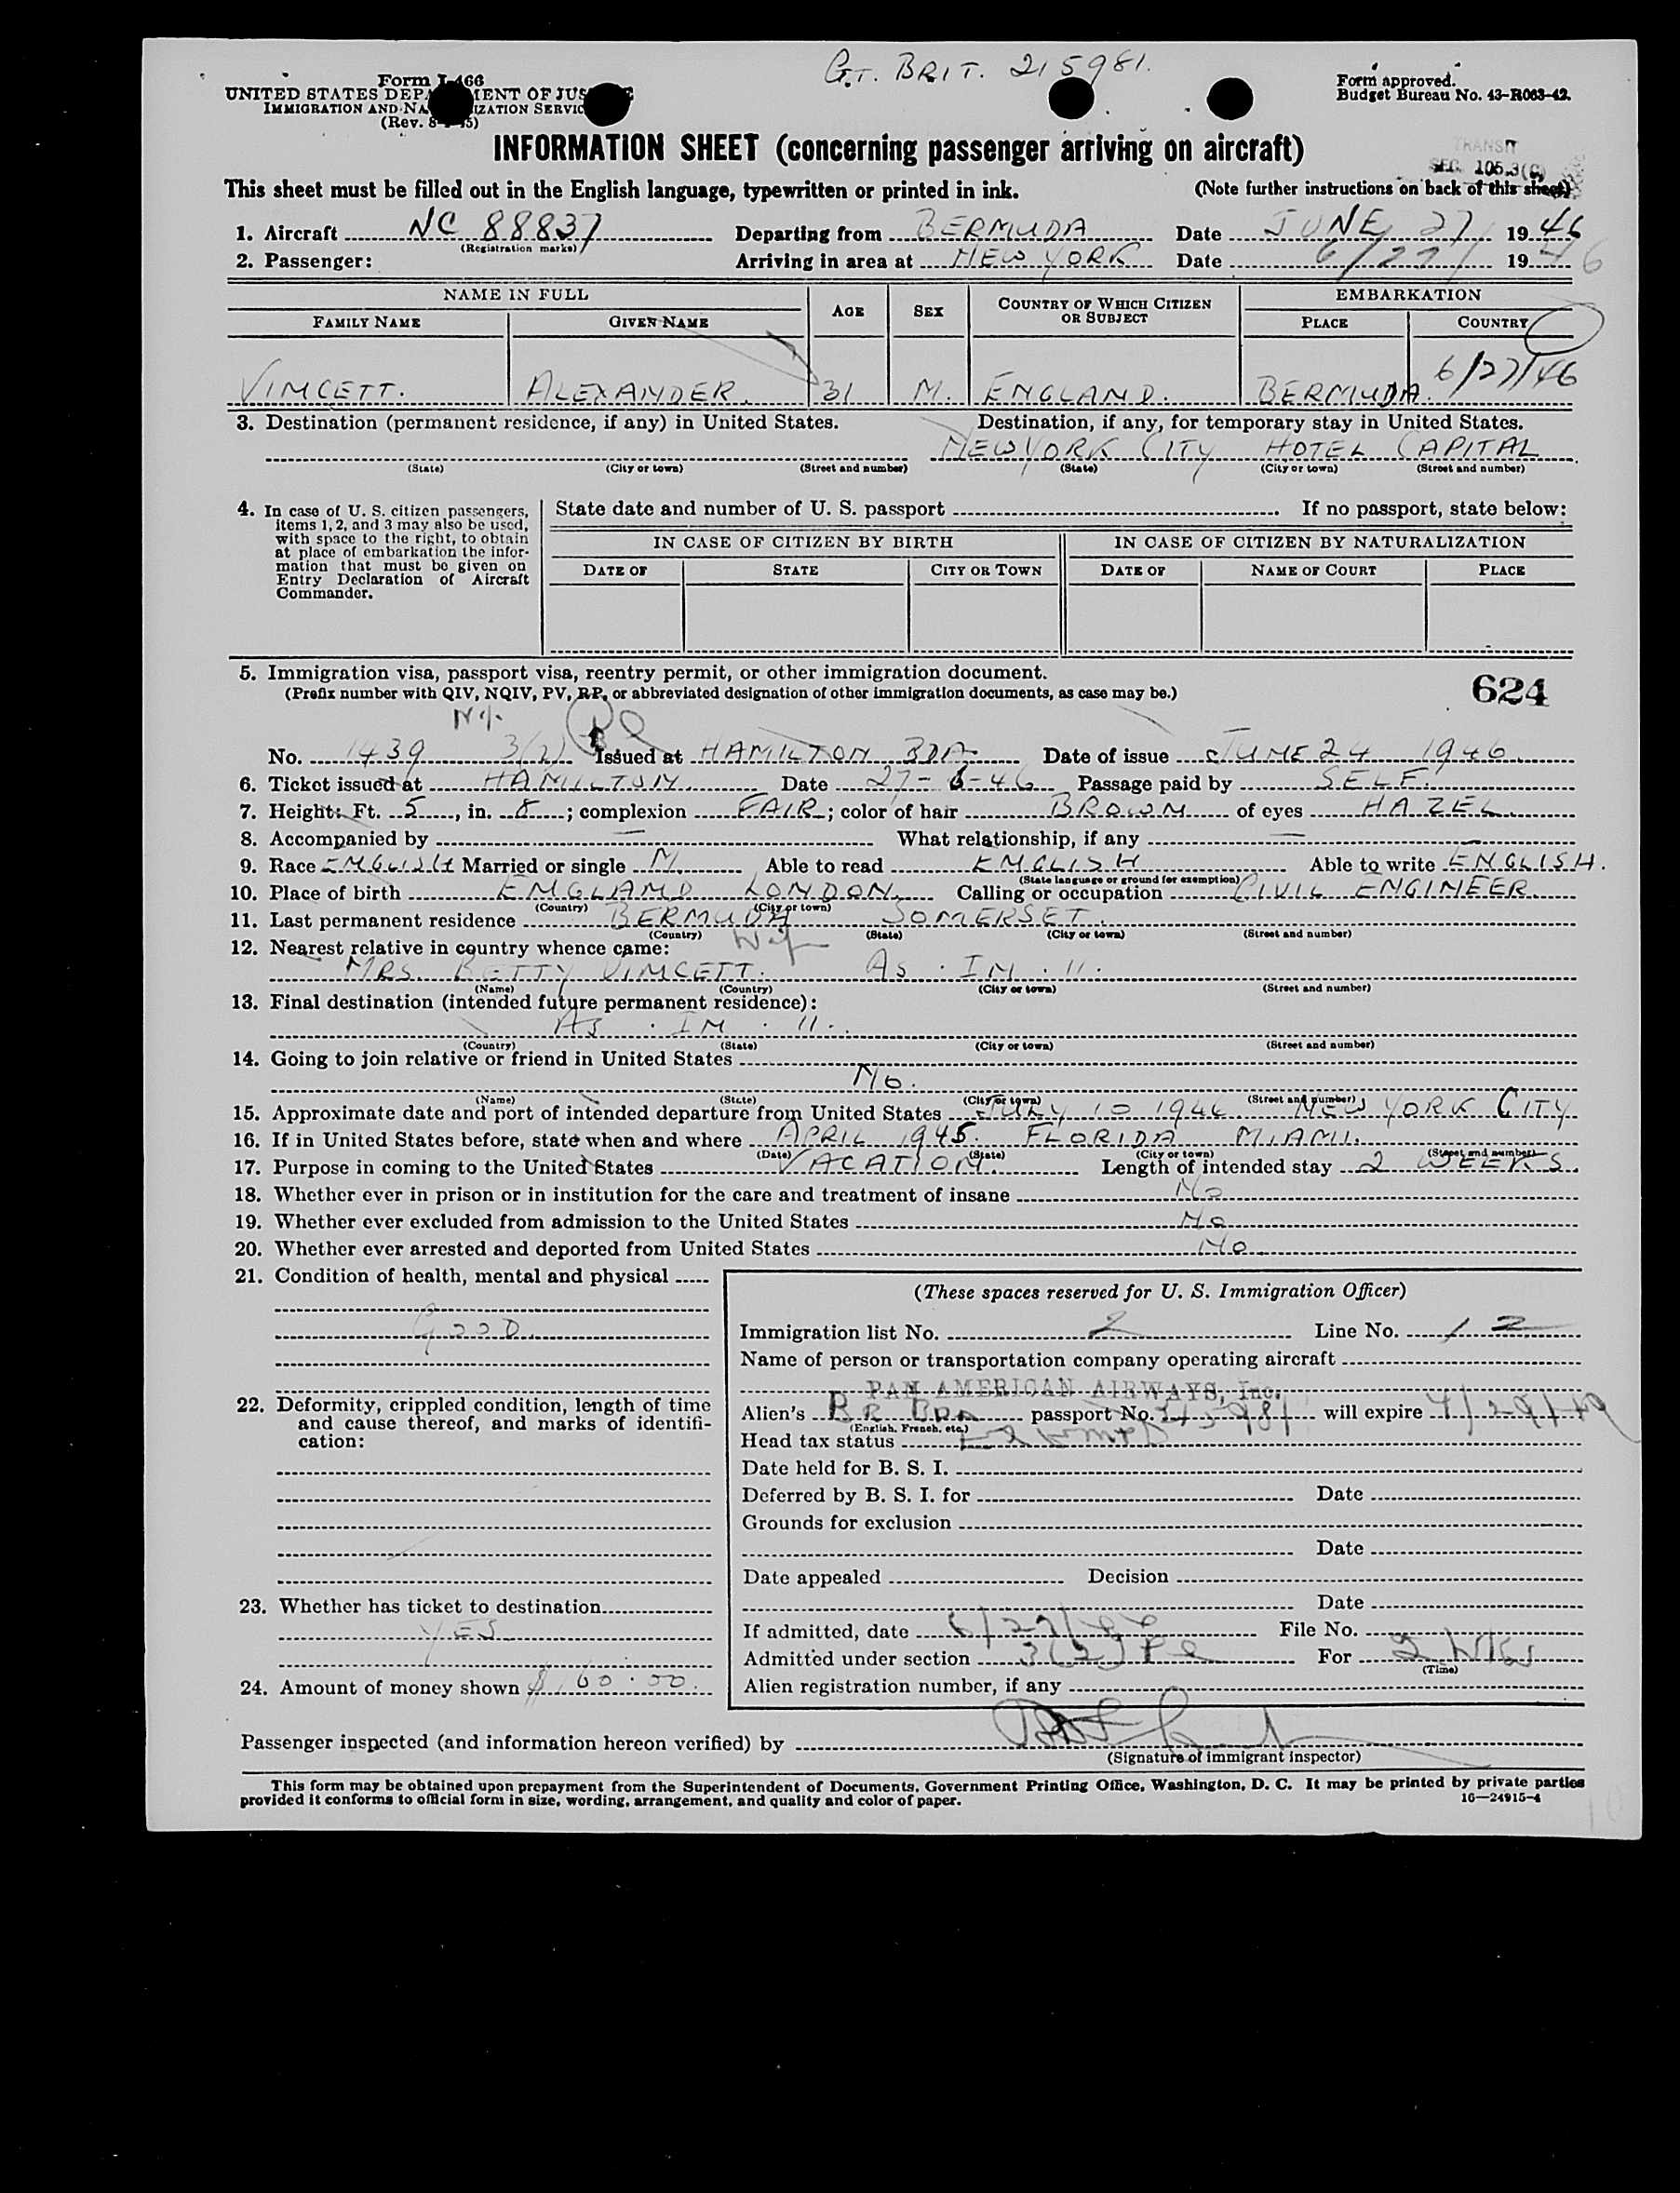 GT. BRIT. 215981.
Form I-466
UNITED STATES DEPARTMENT OF JUSTICE
IMMIGRATION AND NATURALIZATION SERVICE
(Rev. 8-1-45)
Form approved.
Budget Bureau No. 43-R063-42.
INFORMATION SHEET (concerning passenger arriving on aircraft)
TRANSIT
SEC. 105.3(C)
This sheet must be filled out in the English language, typewritten or printed in ink. (Note further instructions on back of this sheet)
1. Aircraft NC 88837 Departing from BERMUDA Date JUNE 27 1946
(Registration marks)
2. Passenger: Arriving in area at NEW YORK Date 6/27/ 1946
NAME IN FULL AGE SEX COUNTRY OF WHICH CITIZEN OR SUBJECT EMBARKATION
FAMILY NAME GIVEN NAME PLACE COUNTRY
6/27/46
VINCETT. ALEXANDER. 31 M. ENGLAND. BERMUDA.
3. Destination (permanent residence, if any) in United States. Destination, if any, for temporary stay in United States.
NEW YORK CITY HOTEL CAPITAL
(State) (City or town) (Street and number) (State) (City or town) (Street and number)
4. In case of U. S. citizen passengers, items 1, 2, and 3 may also be used, with space to the right, to obtain at place of embarkation the information that must be given on Entry Declaration of Aircraft Commander.
State date and number of U. S. passport . If no passport, state below:
IN CASE OF CITIZEN BY BIRTH IN CASE OF CITIZEN BY NATURALIZATION
DATE OF STATE CITY OR TOWN DATE OF NAME OF COURT PLACE
5. Immigration visa, passport visa, reentry permit, or other immigration document.
(Prefix number with QIV, NQIV, PV, RP, or abbreviated designation of other immigration documents, as case may be.)
624
No. 1439 3(2) Issued at HAMILTON BDA Date of issue JUNE 24 1946
6. Ticket issued at HAMILTON Date 27-6-46 Passage paid by SELF.
7. Height: Ft. 5, in. 8; complexion FAIR; color of hair BROWN of eyes HAZEL
8. Accompanied by — What relationship, if any —
9. Race ENGLISH Married or single M. Able to read ENGLISH Able to write ENGLISH.
(State language or ground for exemption)
10. Place of birth ENGLAND LONDON. Calling or occupation CIVIL ENGINEER.
(Country) (City or town)
11. Last permanent residence BERMUDA SOMERSET.
(Country) (State) (City or town) (Street and number)
12. Nearest relative in country whence came:
MRS. BETTY VINCETT. AS. IN. 11.
(Name) (Country) (City or town) (Street and number)
13. Final destination (intended future permanent residence):
AS. IN. 11.
(Country) (State) (City or town) (Street and number)
14. Going to join relative or friend in United States
NO.
(Name) (State) (City or town) (Street and number)
15. Approximate date and port of intended departure from United States JULY 10 1946 NEW YORK CITY
16. If in United States before, state when and where APRIL 1945. FLORIDA MIAMI.
(Date) (State) (City or town) (Street and number)
17. Purpose in coming to the United States VACATION. Length of intended stay 2 WEEKS.
18. Whether ever in prison or in institution for the care and treatment of insane NO
19. Whether ever excluded from admission to the United States NO
20. Whether ever arrested and deported from United States NO
21. Condition of health, mental and physical
GOOD.
22. Deformity, crippled condition, length of time and cause thereof, and marks of identification:
23. Whether has ticket to destination
YES
24. Amount of money shown $ 60.00.
(These spaces reserved for U. S. Immigration Officer)
Immigration list No. 2 Line No. 12
Name of person or transportation company operating aircraft
PAN AMERICAN AIRWAYS, Inc.
Alien's BR BDA passport No. will expire 4/29/49
(English, French, etc.)
Head tax status
Date held for B. S. I.
Deferred by B. S. I. for Date
Grounds for exclusion
Date
Date appealed Decision
Date
If admitted, date 6/27/46 File No.
Admitted under section 3(2) For 2 Wks
(Time)
Alien registration number, if any
Passenger inspected (and information hereon verified) by
(Signature of immigrant inspector)
This form may be obtained upon prepayment from the Superintendent of Documents, Government Printing Office, Washington, D. C. It may be printed by private parties
provided it conforms to official form in size, wording, arrangement, and quality and color of paper. 16—24915-4